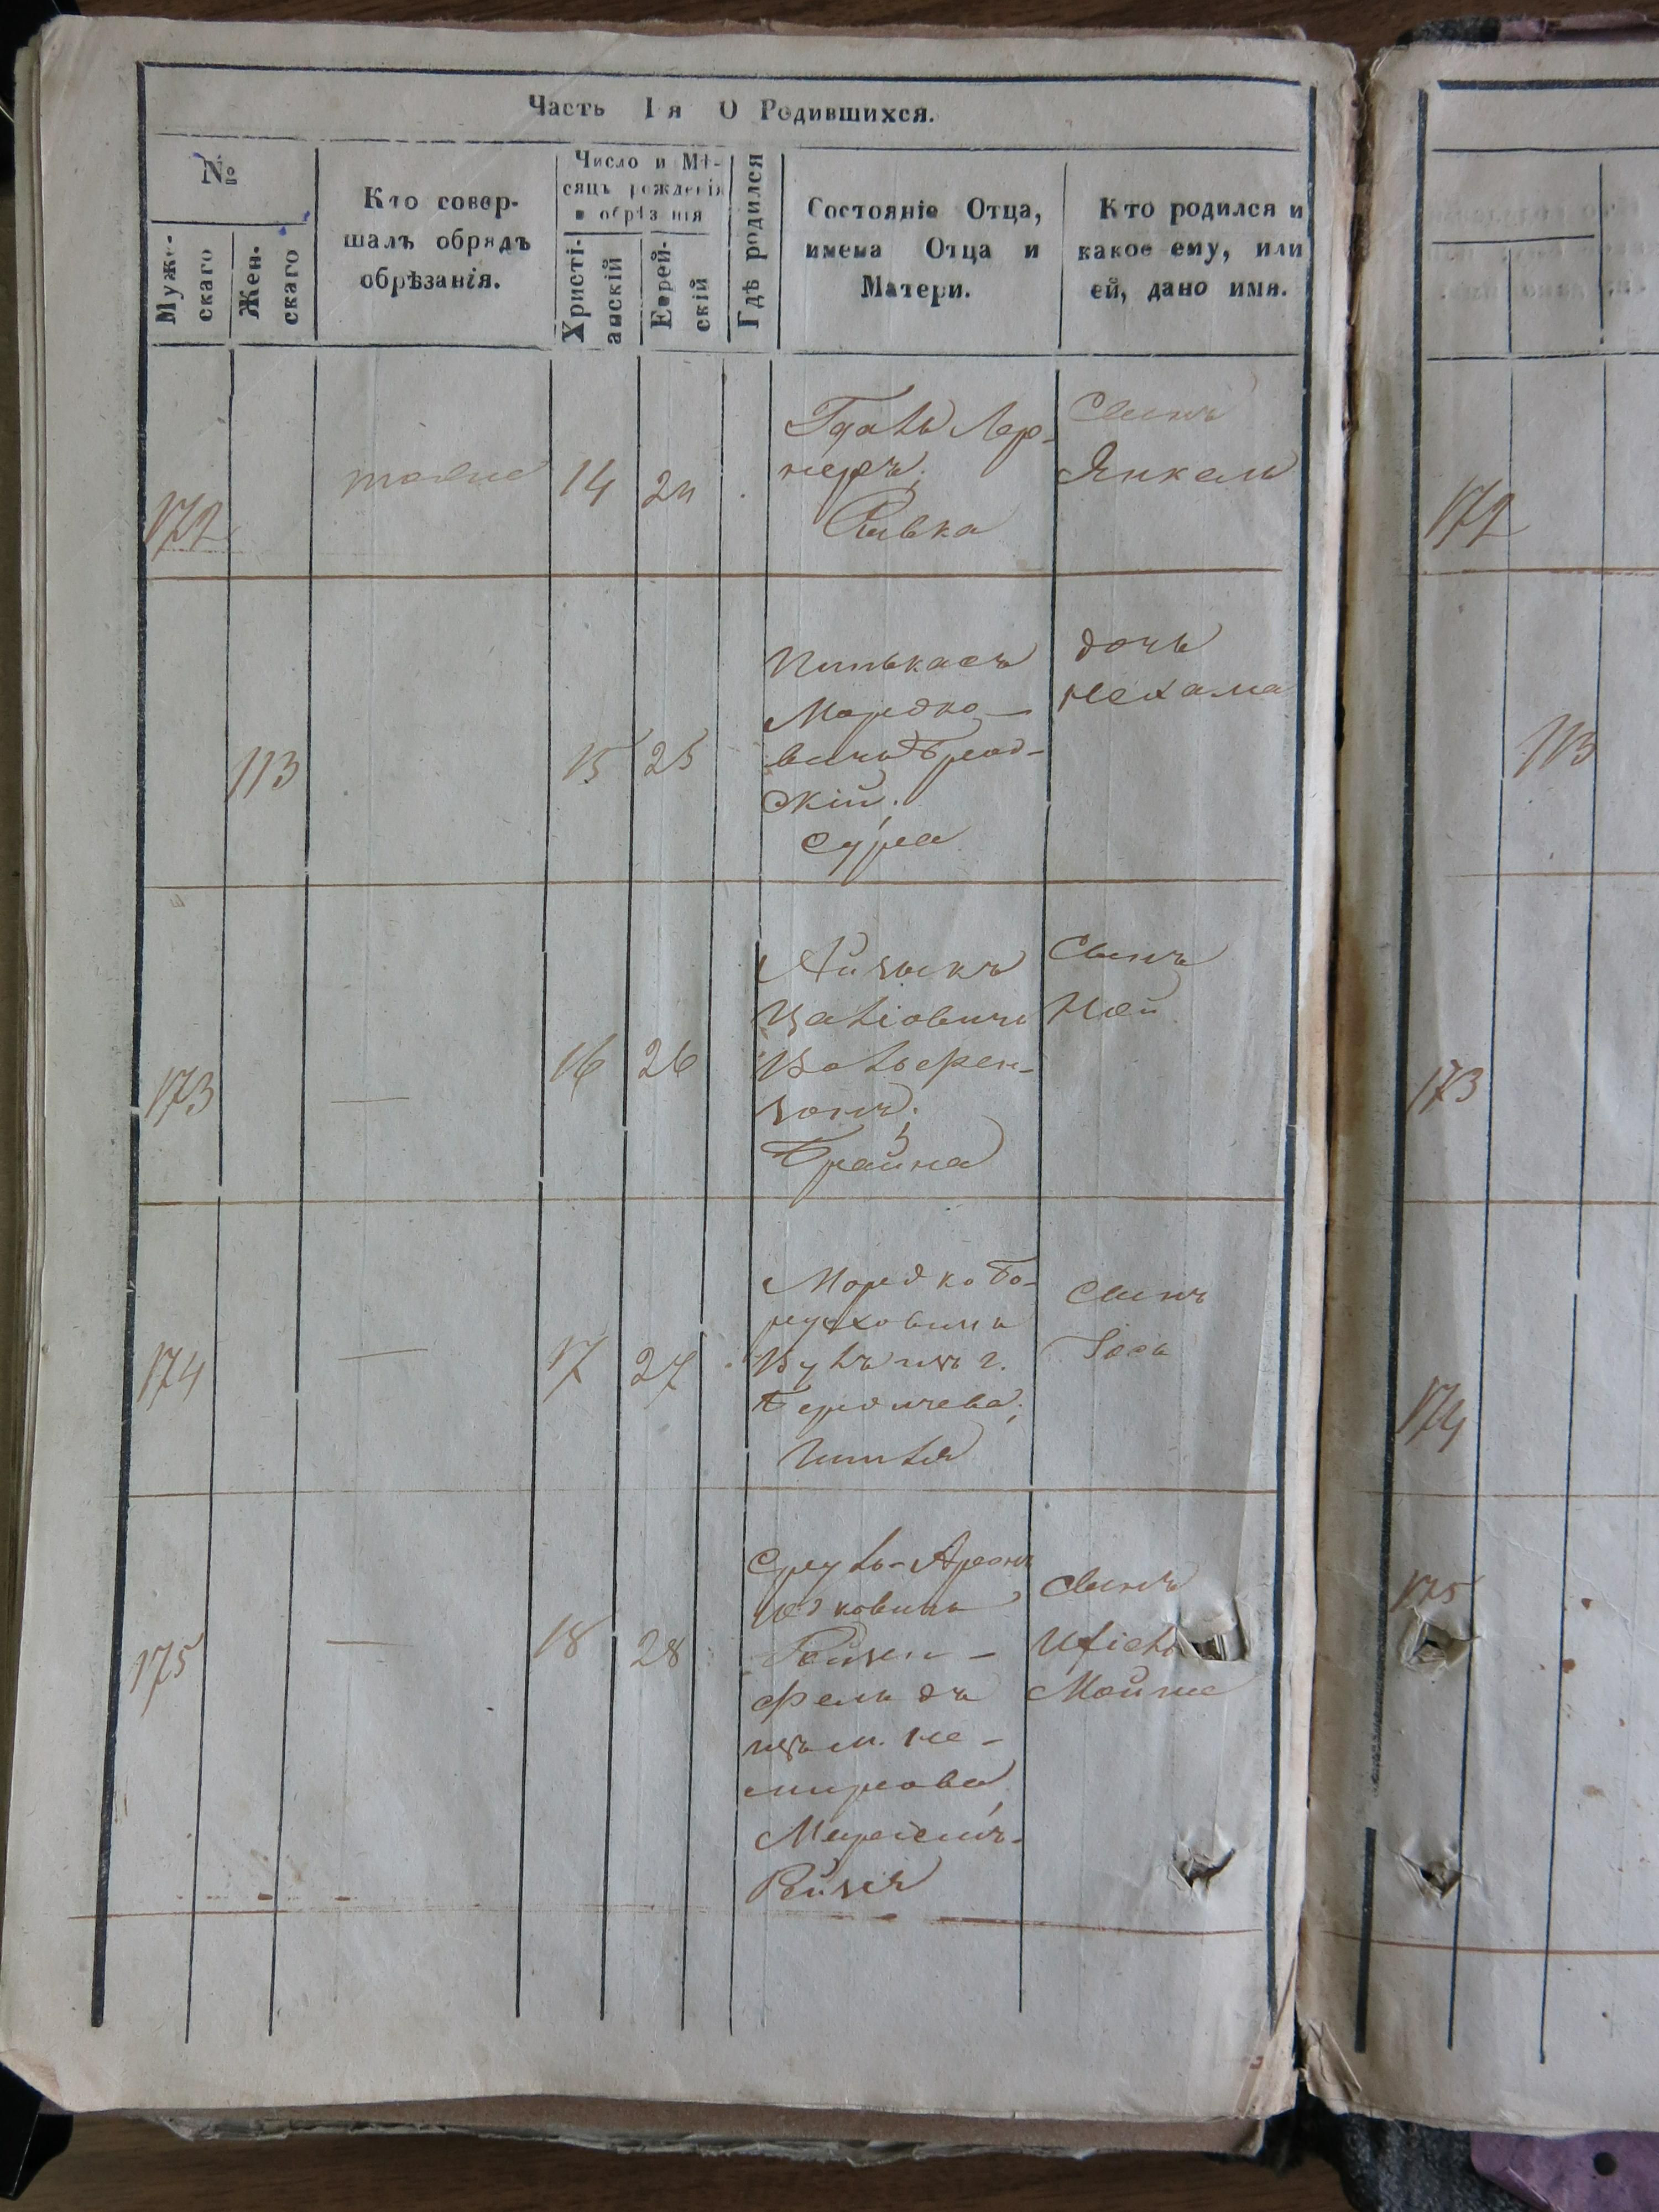 Часть I я О Родившихся.
№
Муже-
скаго
Жен-
скаго
Кто совер-
шалъ обрядъ
обрѣзанія.
Число и Мѣ-
сяцъ рожденія
и обрѣзанія
Христі-
анскій
Еврей-
скій
Гдѣ родился
Состояніе Отца,
имена Отца и
Матери.
Кто родился и
какое ему, или
ей, дано имя.
172
тоже
14
24
Гдаль Лер-
неръ;
Ривка
Сынъ
Янкель
172
113
15
25
Пинькасъ
Мордко-
вичъ Брод-
скій;
Сура
дочь
Нехама
113
173
16
26
Айзыкъ
Вольфен-
зонъ;
Брайна
Сынъ
Ной
173
174
17
27
Мордко Бо-
руховичъ
изъ г.
Бердичева;
Сынъ
Іось
174
175
18
28
Сруль-Аронъ
Іодковичъ
Ройзен-
фельдъ
изъ м. Не-
мирова,
Сынъ
Мойше
175